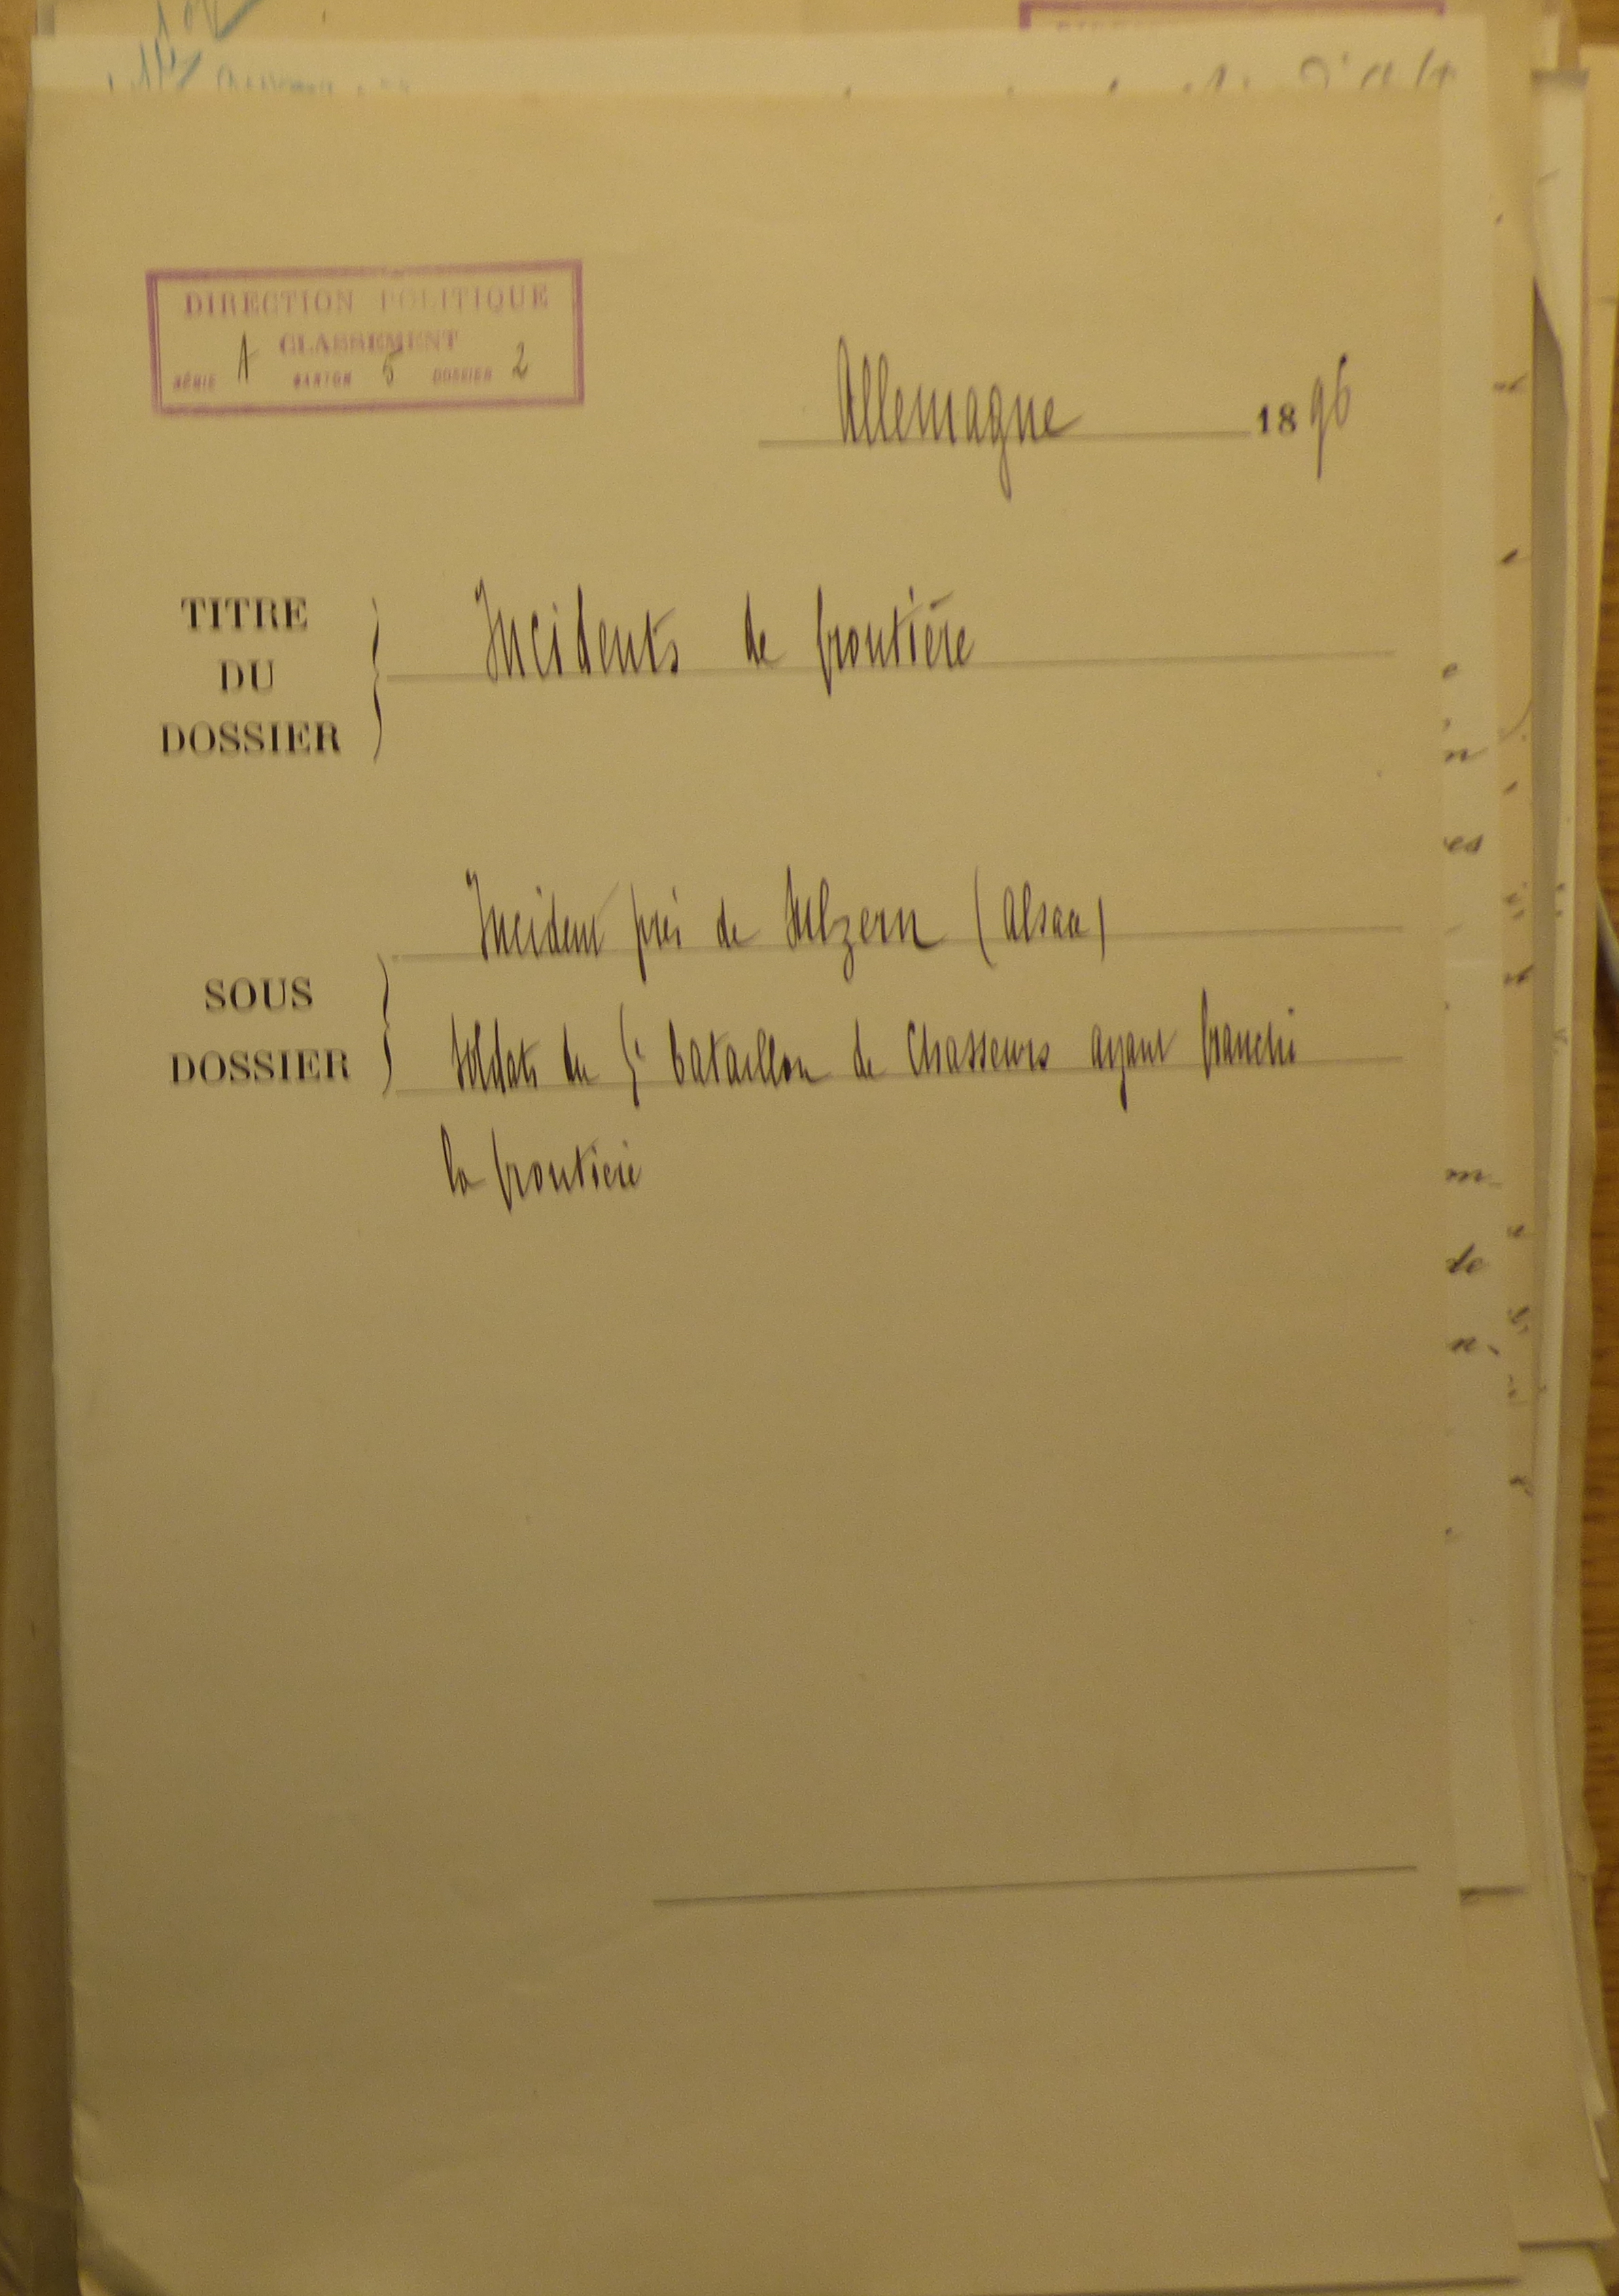 DIRECTION POLITIQUE
CLASSEMENT
SÉRIE A CARTON 5 DOSSIER 2
Allemagne 1896
TITRE
DU
DOSSIER
Incidents de frontière
SOUS
DOSSIER
Incident près de Sulzern (Alsace)
Soldats du 5e bataillon de Chasseurs ayant franchi
la frontière
e
n
es
m
de
n